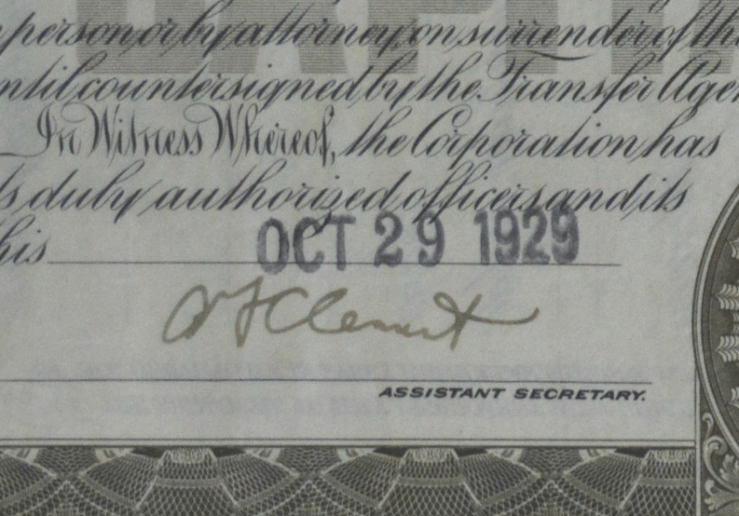 person or by attorney, on surrender of
countersigned by the Transfer
In Witness Whereof, the Corporation has
duly authorized officers and its
OCT 29 1929
ASSISTANT SECRETARY.